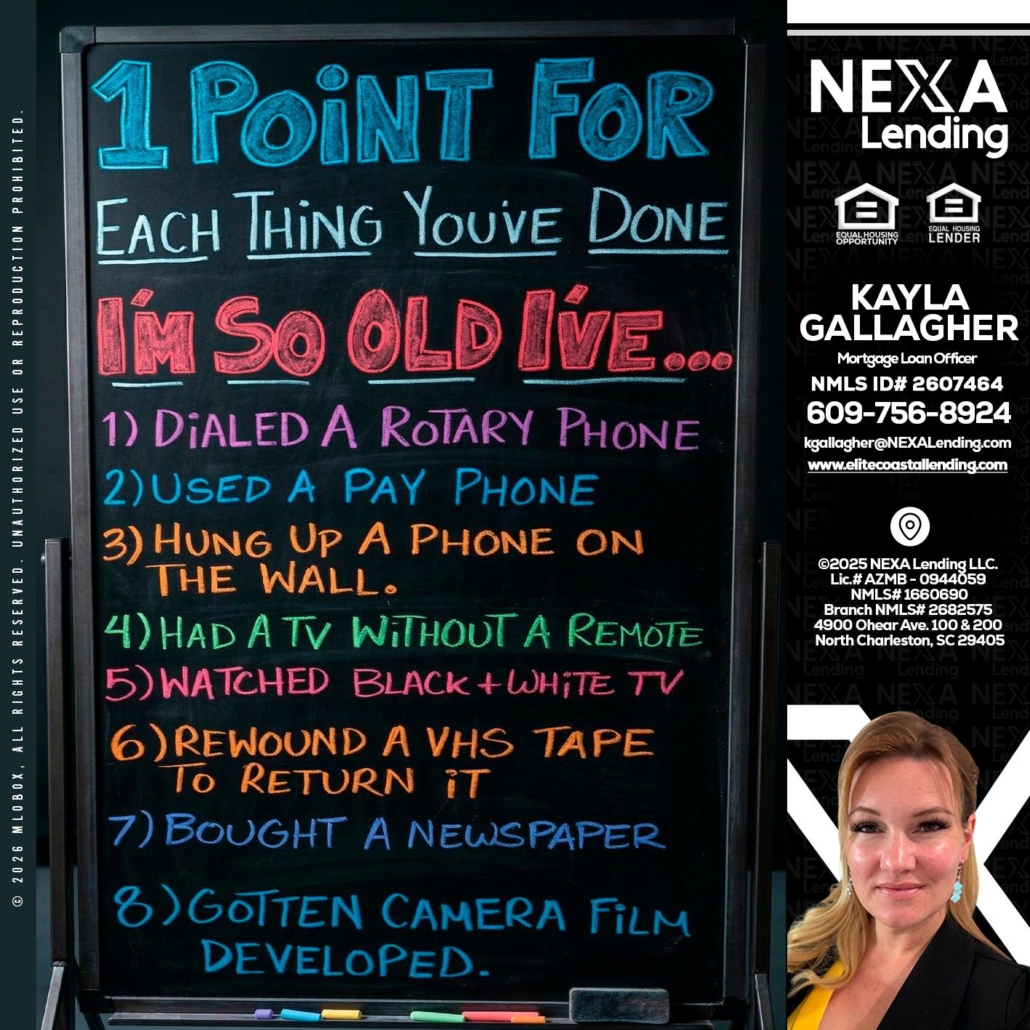 1 POINT FOR
EACH THING YOU'VE DONE
I'M SO OLD I'VE...
1) DIALED A ROTARY PHONE
2) USED A PAY PHONE
3) HUNG UP A PHONE ON
THE WALL.
4) HAD A TV WITHOUT A REMOTE
5) WATCHED BLACK + WHITE TV
6) REWOUND A VHS TAPE
TO RETURN IT
7) BOUGHT A NEWSPAPER
8) GOTTEN CAMERA FILM
DEVELOPED.
© 2026 MLOBOX, ALL RIGHTS RESERVED. UNAUTHORIZED USE OR REPRODUCTION PROHIBITED.
NEXA
Lending
EQUAL HOUSING
OPPORTUNITY
EQUAL HOUSING
LENDER
KAYLA
GALLAGHER
Mortgage Loan Officer
NMLS ID# 2607464
609-756-8924
kgallagher@NEXALending.com
www.elitecoastallending.com
©2025 NEXA Lending LLC.
Lic.# AZMB - 0944059
NMLS# 1660690
Branch NMLS# 2682575
4900 Ohear Ave. 100 & 200
North Charleston, SC 29405